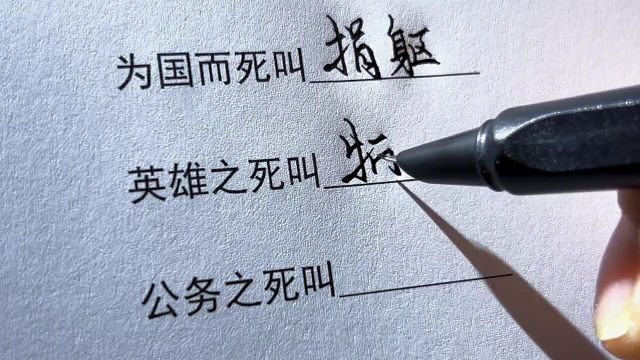 为国而死叫捐躯
英雄之死叫
公务之死叫